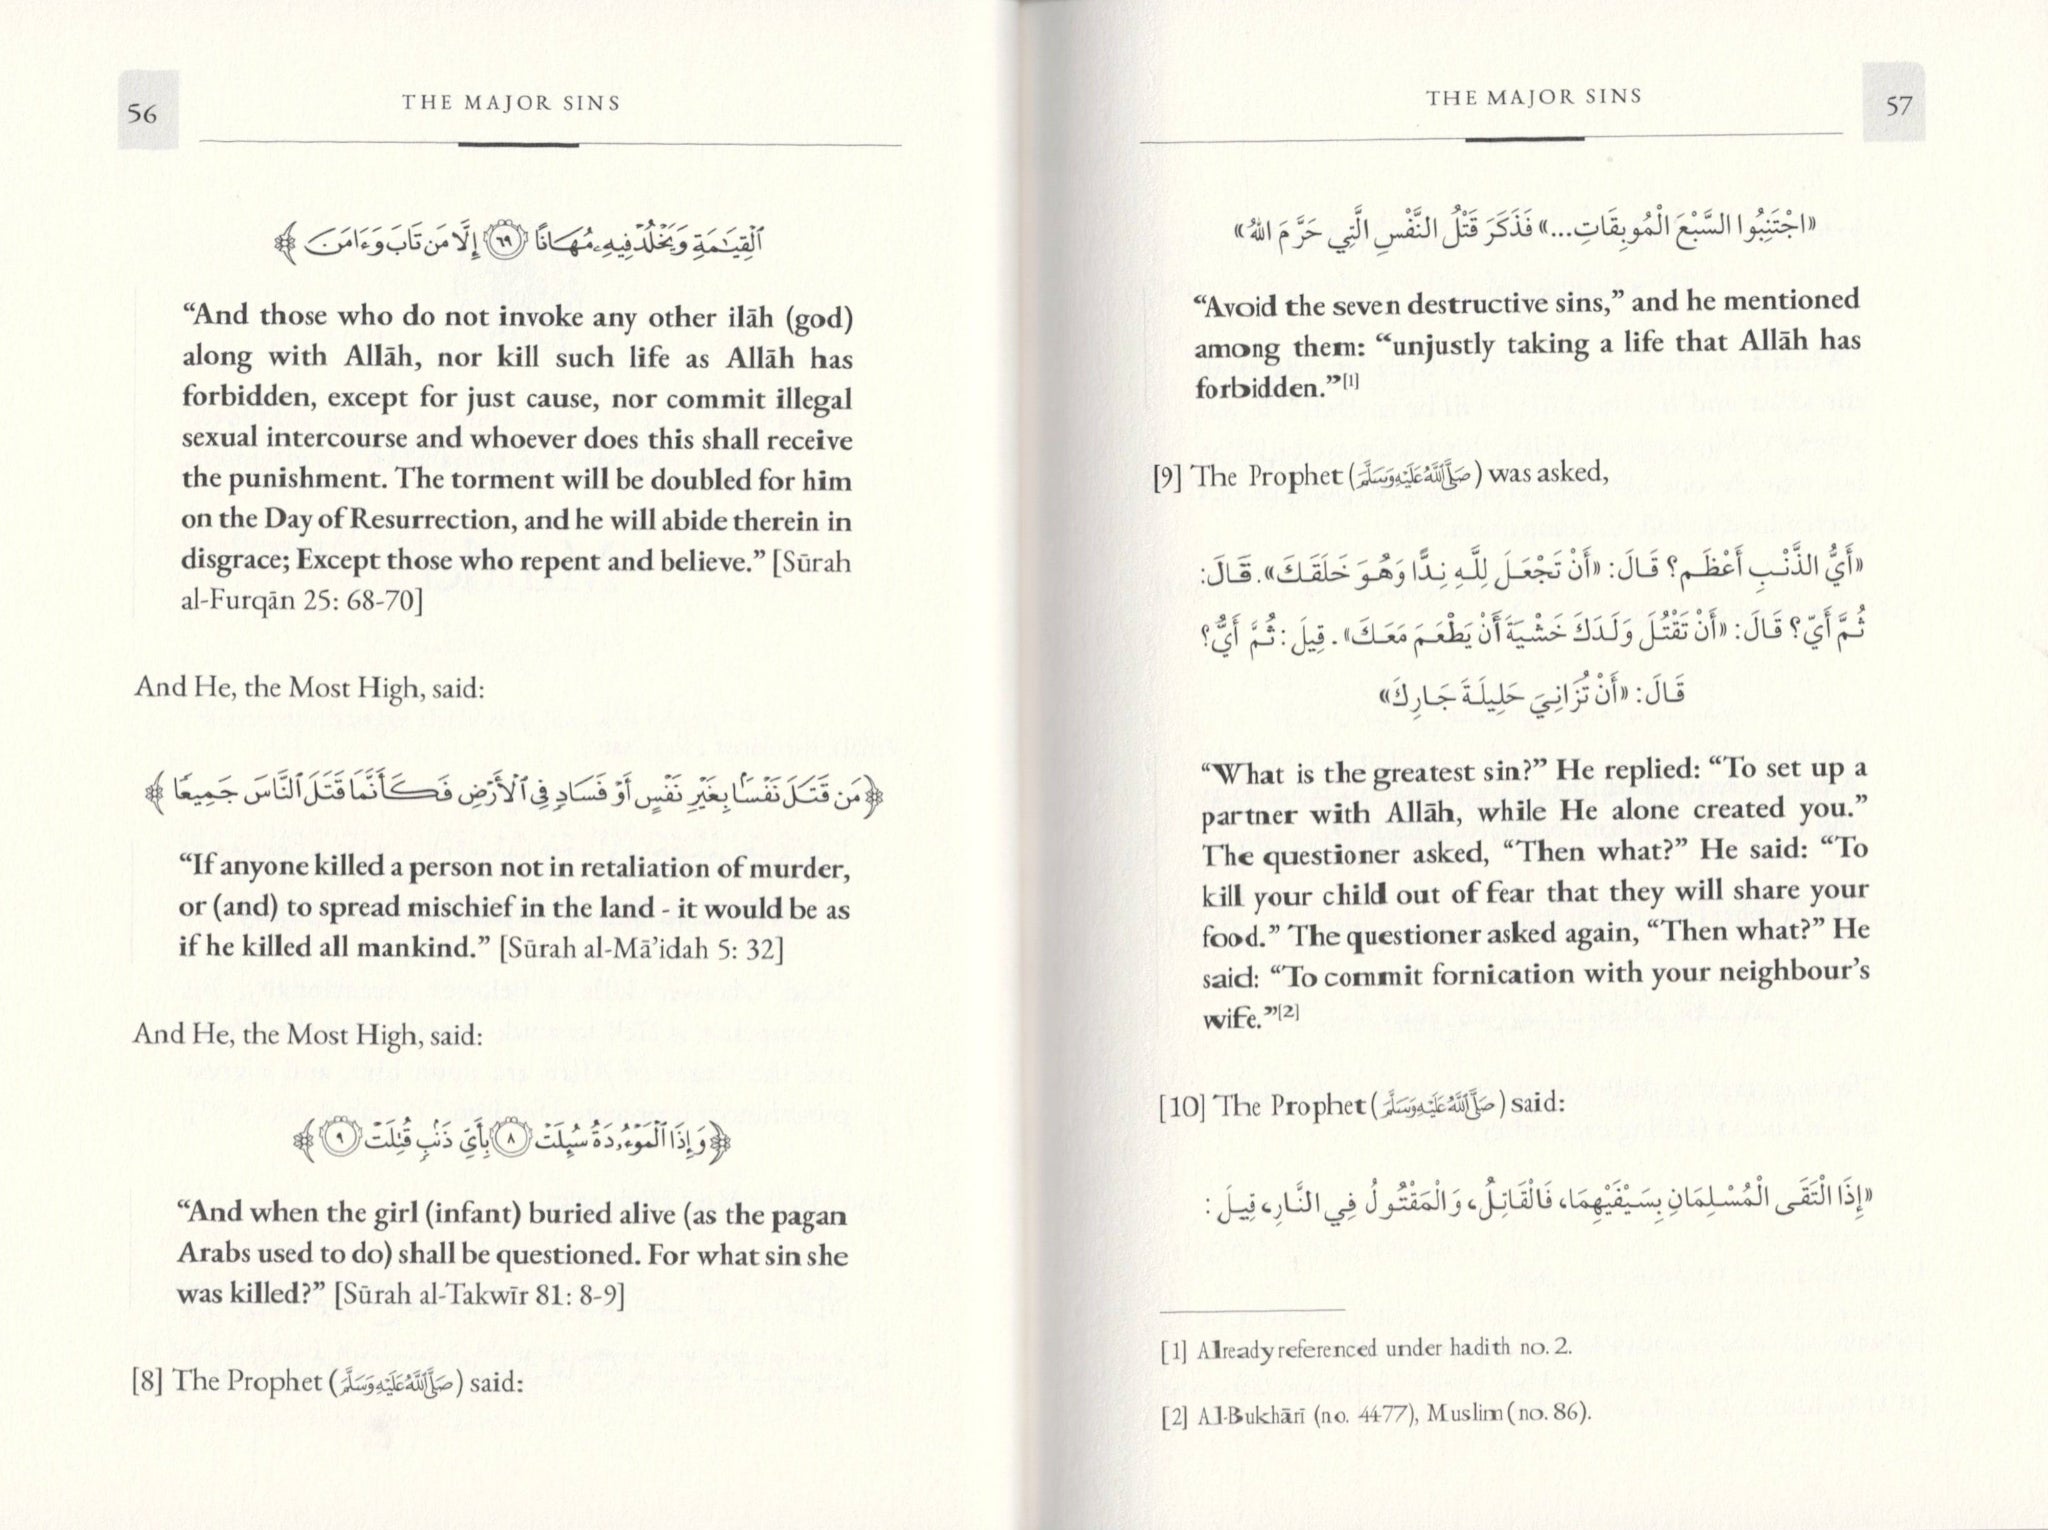 56
THE MAJOR SINS
ٱلْقِيَـٰمَةِ وَيَخْلُدْ فِيهِۦ مُهَانًا ٦٩ إِلَّا مَن تَابَ وَءَامَنَ ﴾
“And those who do not invoke any other ilāh (god)
along with Allāh, nor kill such life as Allāh has
forbidden, except for just cause, nor commit illegal
sexual intercourse and whoever does this shall receive
the punishment. The torment will be doubled for him
on the Day of Resurrection, and he will abide therein in
disgrace; Except those who repent and believe.” [Sūrah
al-Furqān 25: 68-70]
And He, the Most High, said:
﴿ مَن قَتَلَ نَفْسًۢا بِغَيْرِ نَفْسٍ أَوْ فَسَادٍ فِى ٱلْأَرْضِ فَكَأَنَّمَا قَتَلَ ٱلنَّاسَ جَمِيعًا ﴾
“If anyone killed a person not in retaliation of murder,
or (and) to spread mischief in the land - it would be as
if he killed all mankind.” [Sūrah al-Mā’idah 5: 32]
And He, the Most High, said:
﴿ وَإِذَا ٱلْمَوْءُۥدَةُ سُئِلَتْ ٨ بِأَىِّ ذَنۢبٍ قُتِلَتْ ٩ ﴾
“And when the girl (infant) buried alive (as the pagan
Arabs used to do) shall be questioned. For what sin she
was killed?” [Sūrah al-Takwīr 81: 8-9]
[8] The Prophet (صَلَّى ٱللَّهُ عَلَيْهِ وَسَلَّمَ) said:
THE MAJOR SINS
57
«اجْتَنِبُوا السَّبْعَ الْمُوبِقَاتِ...» فَذَكَرَ قَتْلُ النَّفْسِ الَّتِي حَرَّمَ اللهُ»
“Avoid the seven destructive sins,” and he mentioned
among them: “unjustly taking a life that Allāh has
forbidden.”[1]
[9] The Prophet (صَلَّى ٱللَّهُ عَلَيْهِ وَسَلَّمَ) was asked,
«أَيُّ الذَّنْبِ أَعْظَم؟ قَالَ: «أَنْ تَجْعَلَ لِلَّهِ نِدًّا وَهُوَ خَلَقَكَ». قَالَ:
ثُمَّ أَيّ؟ قَالَ: «أَنْ تَقْتُلَ وَلَدَكَ خَشْيَةَ أَنْ يَطْعَمَ مَعَكَ». قِيلَ: ثُمَّ أَيُّ؟
قَالَ: «أَنْ تُزَانِيَ حَلِيلَةَ جَارِكَ»
“What is the greatest sin?” He replied: “To set up a
partner with Allāh, while He alone created you.”
The questioner asked, “Then what?” He said: “To
kill your child out of fear that they will share your
food.” The questioner asked again, “Then what?” He
said: “To commit fornication with your neighbour’s
wife.”[2]
[10] The Prophet (صَلَّى ٱللَّهُ عَلَيْهِ وَسَلَّمَ) said:
«إِذَا الْتَقَى الْمُسْلِمَانِ بِسَيْفَيْهِمَا، فَالْقَاتِلُ، وَالْمَقْتُولُ فِي النَّارِ، قِيلَ:
[1] Already referenced under hadith no. 2.
[2] Al-Bukhārī (no. 4477), Muslim (no. 86).